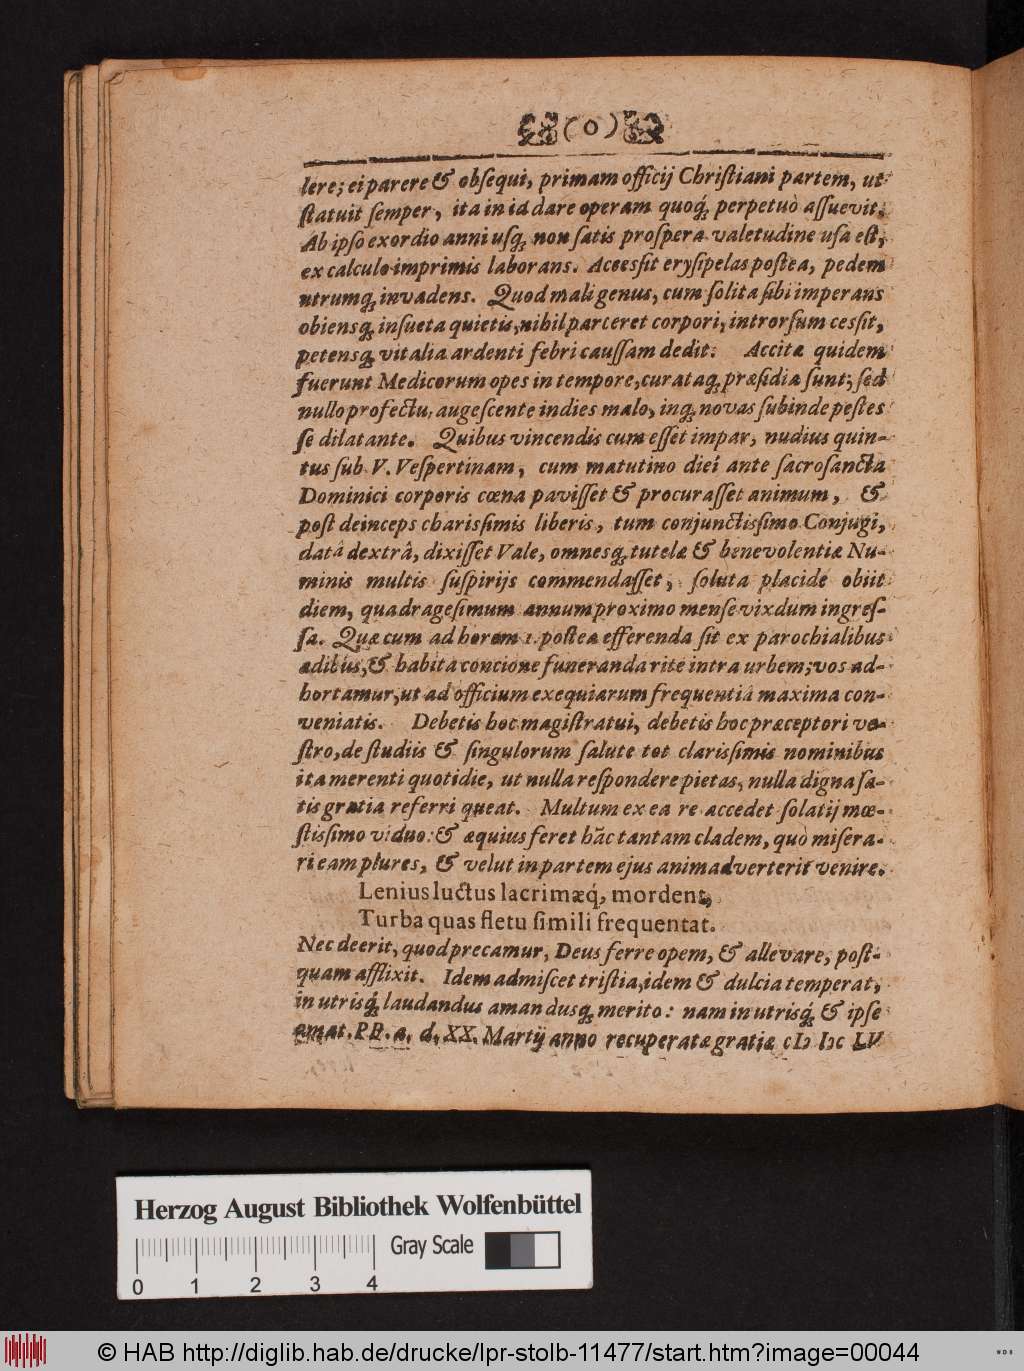 (0)
lere; ei parere & obsequi, primam officij Christiani partem, ut
statuit semper, ita in id dare operam quoq́; perpetuò assuevit.
Ab ipso exordio anni usq; non satis prospera valetudine usa est,
ex calculo imprimis laborans. Accessit erysipelas postea, pedem
utrumq; invadens. Quod mali genus, cum solita sibi imperans
obiensq; insueta quietis, nihil parceret corpori, introrsum cessit,
petensq; vitalia ardenti febri caussam dedit. Accitæ quidem
fuerunt Medicorum opes in tempore, curataq; præsidia sunt; sed
nullo profectu, augescente indies malo, inq; novas subinde pestes
se dilatante. Quibus vincendis cum esset impar, nudius quin-
tus sub V. Vespertinam, cum matutino diei ante sacrosancta
Dominici corporis cœna pavisset & procurasset animum, &
post deinceps charissimis liberis, tum conjunctissimo Conjugi,
datâ dextrâ, dixisset Vale, omnesq; tutelæ & benevolentiæ Nu-
minis multis suspirijs commendasset, soluta placide obiit
diem, quadragesimum annum proximo mense vixdum ingres-
sa. Quæ cum ad horam 1. postea efferenda sit ex parochialibus
ædibus, & habita concione funeranda rite intra urbem; vos ad-
hortamur, ut ad officium exequiarum frequentiâ maxima con-
veniatis. Debetis hoc magistratui, debetis hoc præceptori ve-
stro, de studiis & singulorum salute tot clarissimis nominibus
ita merenti quotidie, ut nulla respondere pietas, nulla digna sa-
tis gratia referri queat. Multum ex ea re accedet solatij mœ-
stissimo viduo: & æquius feret hãc tantam cladem, quò misera-
ri eam plures, & velut in partem ejus animadverterit venire.
Lenius luctus lacrimæq́; mordent,
Turba quas fletu simili frequentat.
Nec deerit, quod precamur, Deus ferre opem, & allevare, post-
quam afflixit. Idem admiscet tristia, idem & dulcia temperat,
in utrisq́; laudandus amandusq; merito: nam in utrisq́; & ipse
amat. PP. a. d. XX. Martij anno recuperatæ gratiæ cIↄ Iↄc LV
Herzog August Bibliothek Wolfenbüttel
Gray Scale
0 1 2 3 4
© HAB http://diglib.hab.de/drucke/lpr-stolb-11477/start.htm?image=00044